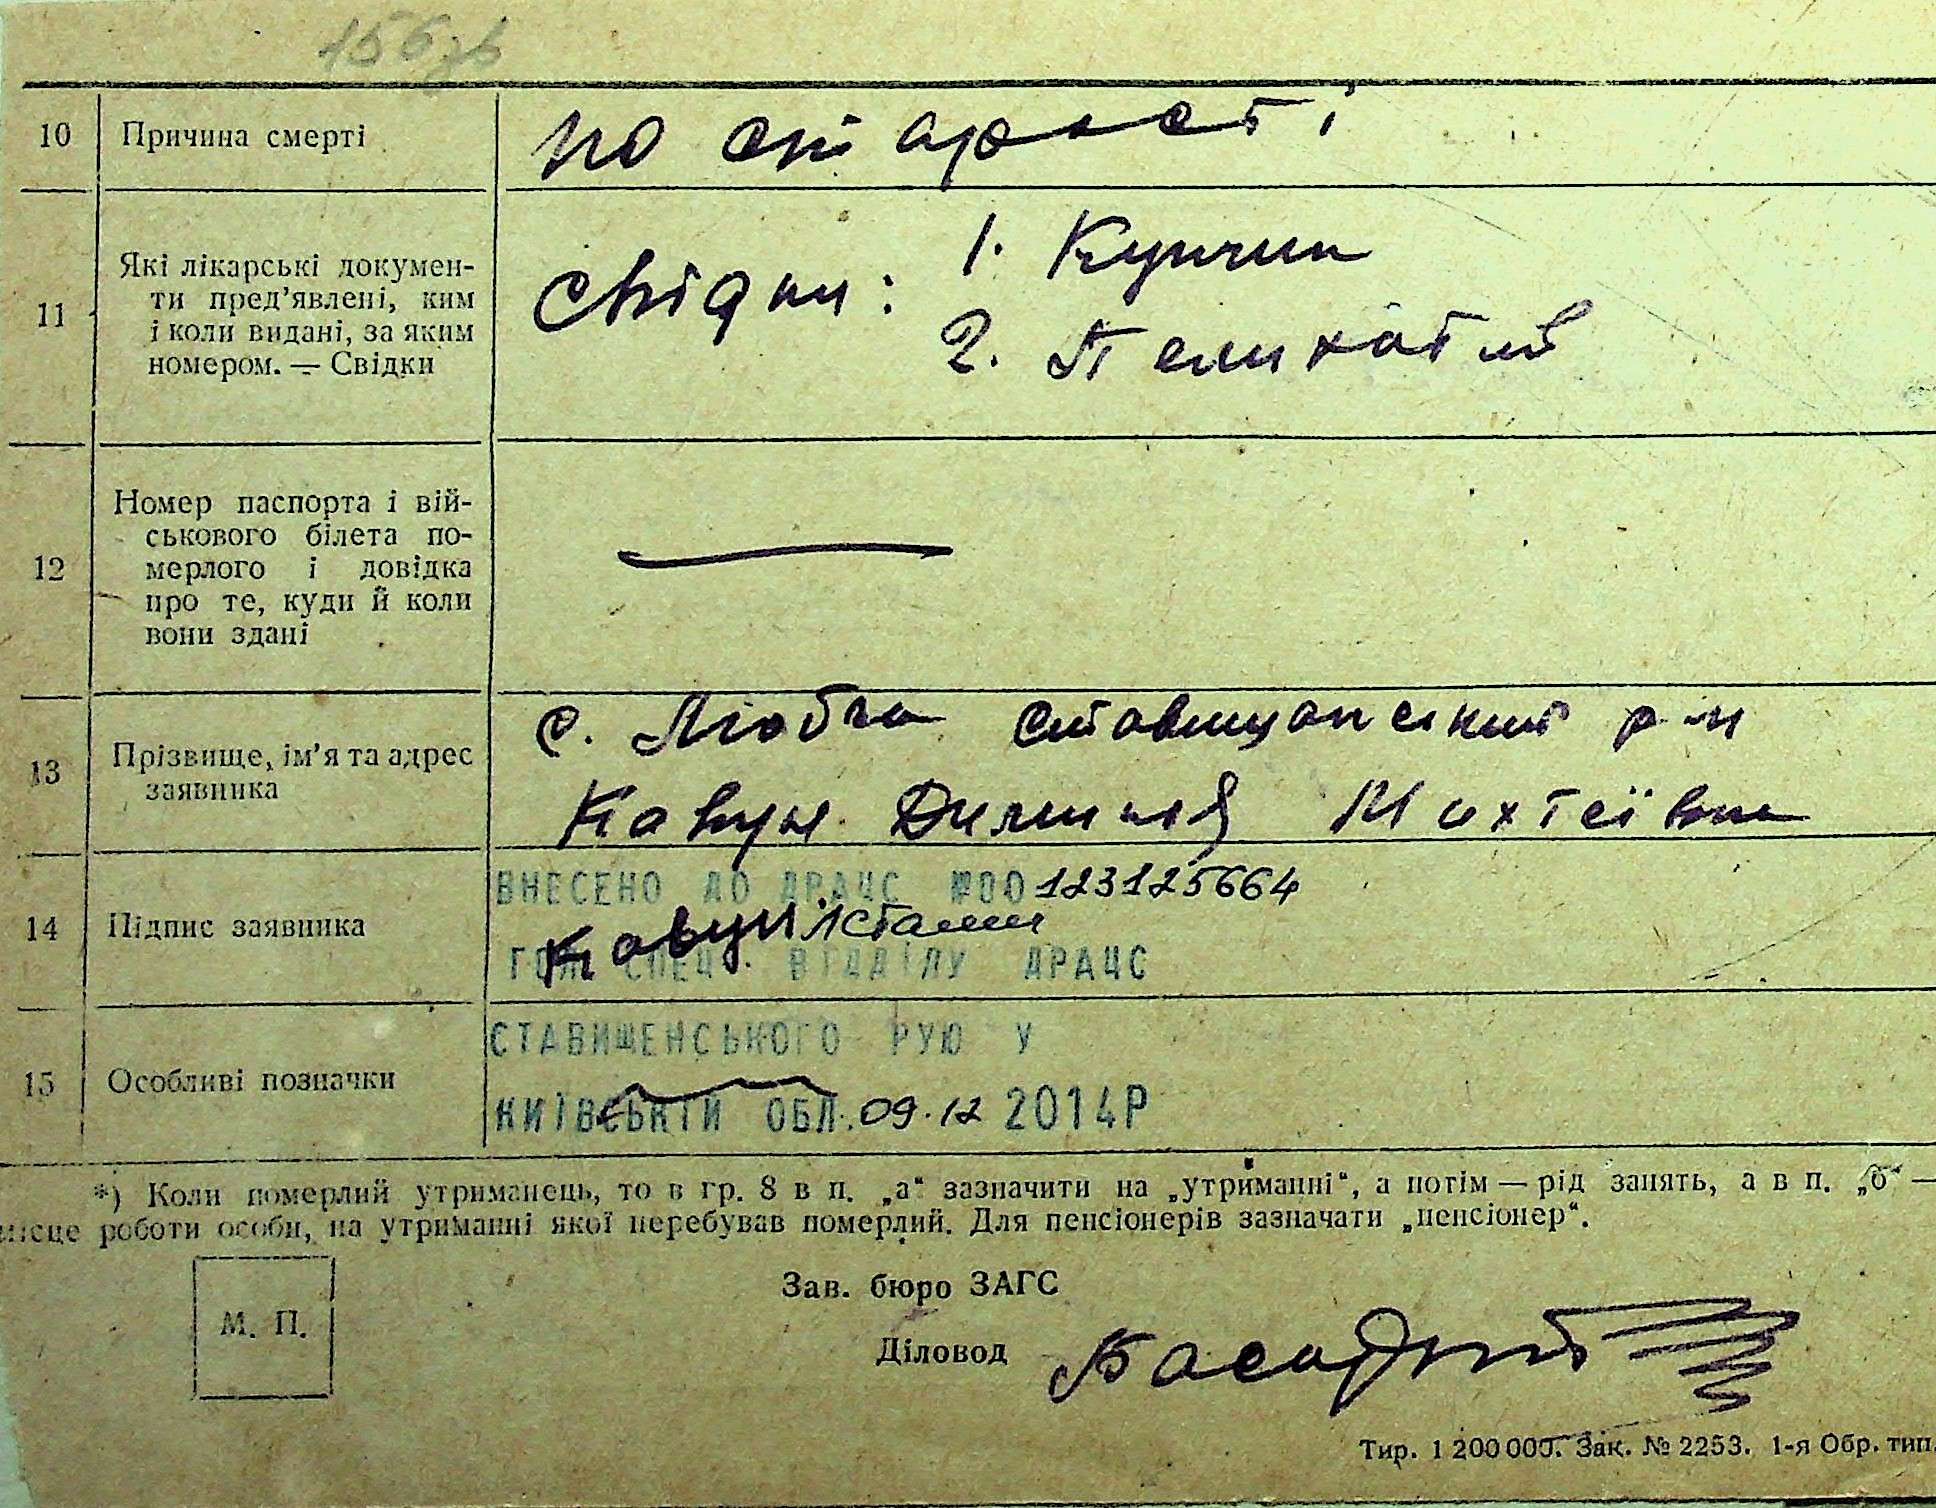 156 зв
10 Причина смерті по старості
11 Які лікарські докумен-
ти пред’явлені, ким
і коли видані, за яким
номером. — Свідки
свідки: 1. Купчик
2.
12 Номер паспорта і вій-
ськового білета по-
мерлого і довідка
про те, куди й коли
вони здані
13 Прізвище, ім’я та адрес
заявника
с. Любча ставищанський р-н
Кавун Михтеївна
14 Підпис заявника
ВНЕСЕНО ДО ДРАЦС №00 123125664
Кавун
ГОЛ. СПЕЦ. ВІДДІЛУ ДРАЦС
15 Особливі позначки
СТАВИЩЕНСЬКОГО РУЮ У
КИЇВСЬКІЙ ОБЛ. 09.12 2014Р
*) Коли померлий утриманець, то в гр. 8 в п. „а“ зазначити на „утриманні“, а потім — рід занять, а в п. „б“ —
місце роботи особи, на утриманні якої перебував померлий. Для пенсіонерів зазначати „пенсіонер“.
М. П.
Зав. бюро ЗАГС
Діловод
Тир. 1 200 000. Зак. № 2253. 1-я Обр. тип.